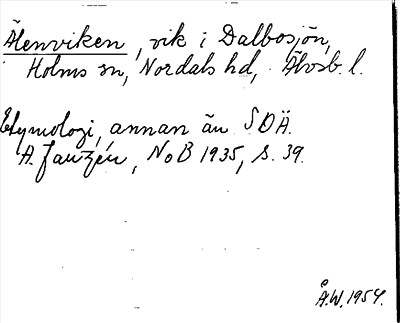 Älenviken, vik i Dalbosjön,
Holms sn, Nordals hd, Älvsb. l.
Etymologi, annan än SOÄ.
A. Janzén, NoB 1935, s. 39.
Å.W. 1954.